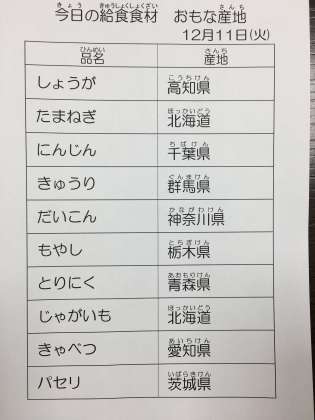 今日の給食食材 おもな産地
12月11日(火)
品名 産地
しょうが 高知県
たまねぎ 北海道
にんじん 千葉県
きゅうり 群馬県
だいこん 神奈川県
もやし 栃木県
とりにく 青森県
じゃがいも 北海道
きゃべつ 愛知県
パセリ 茨城県